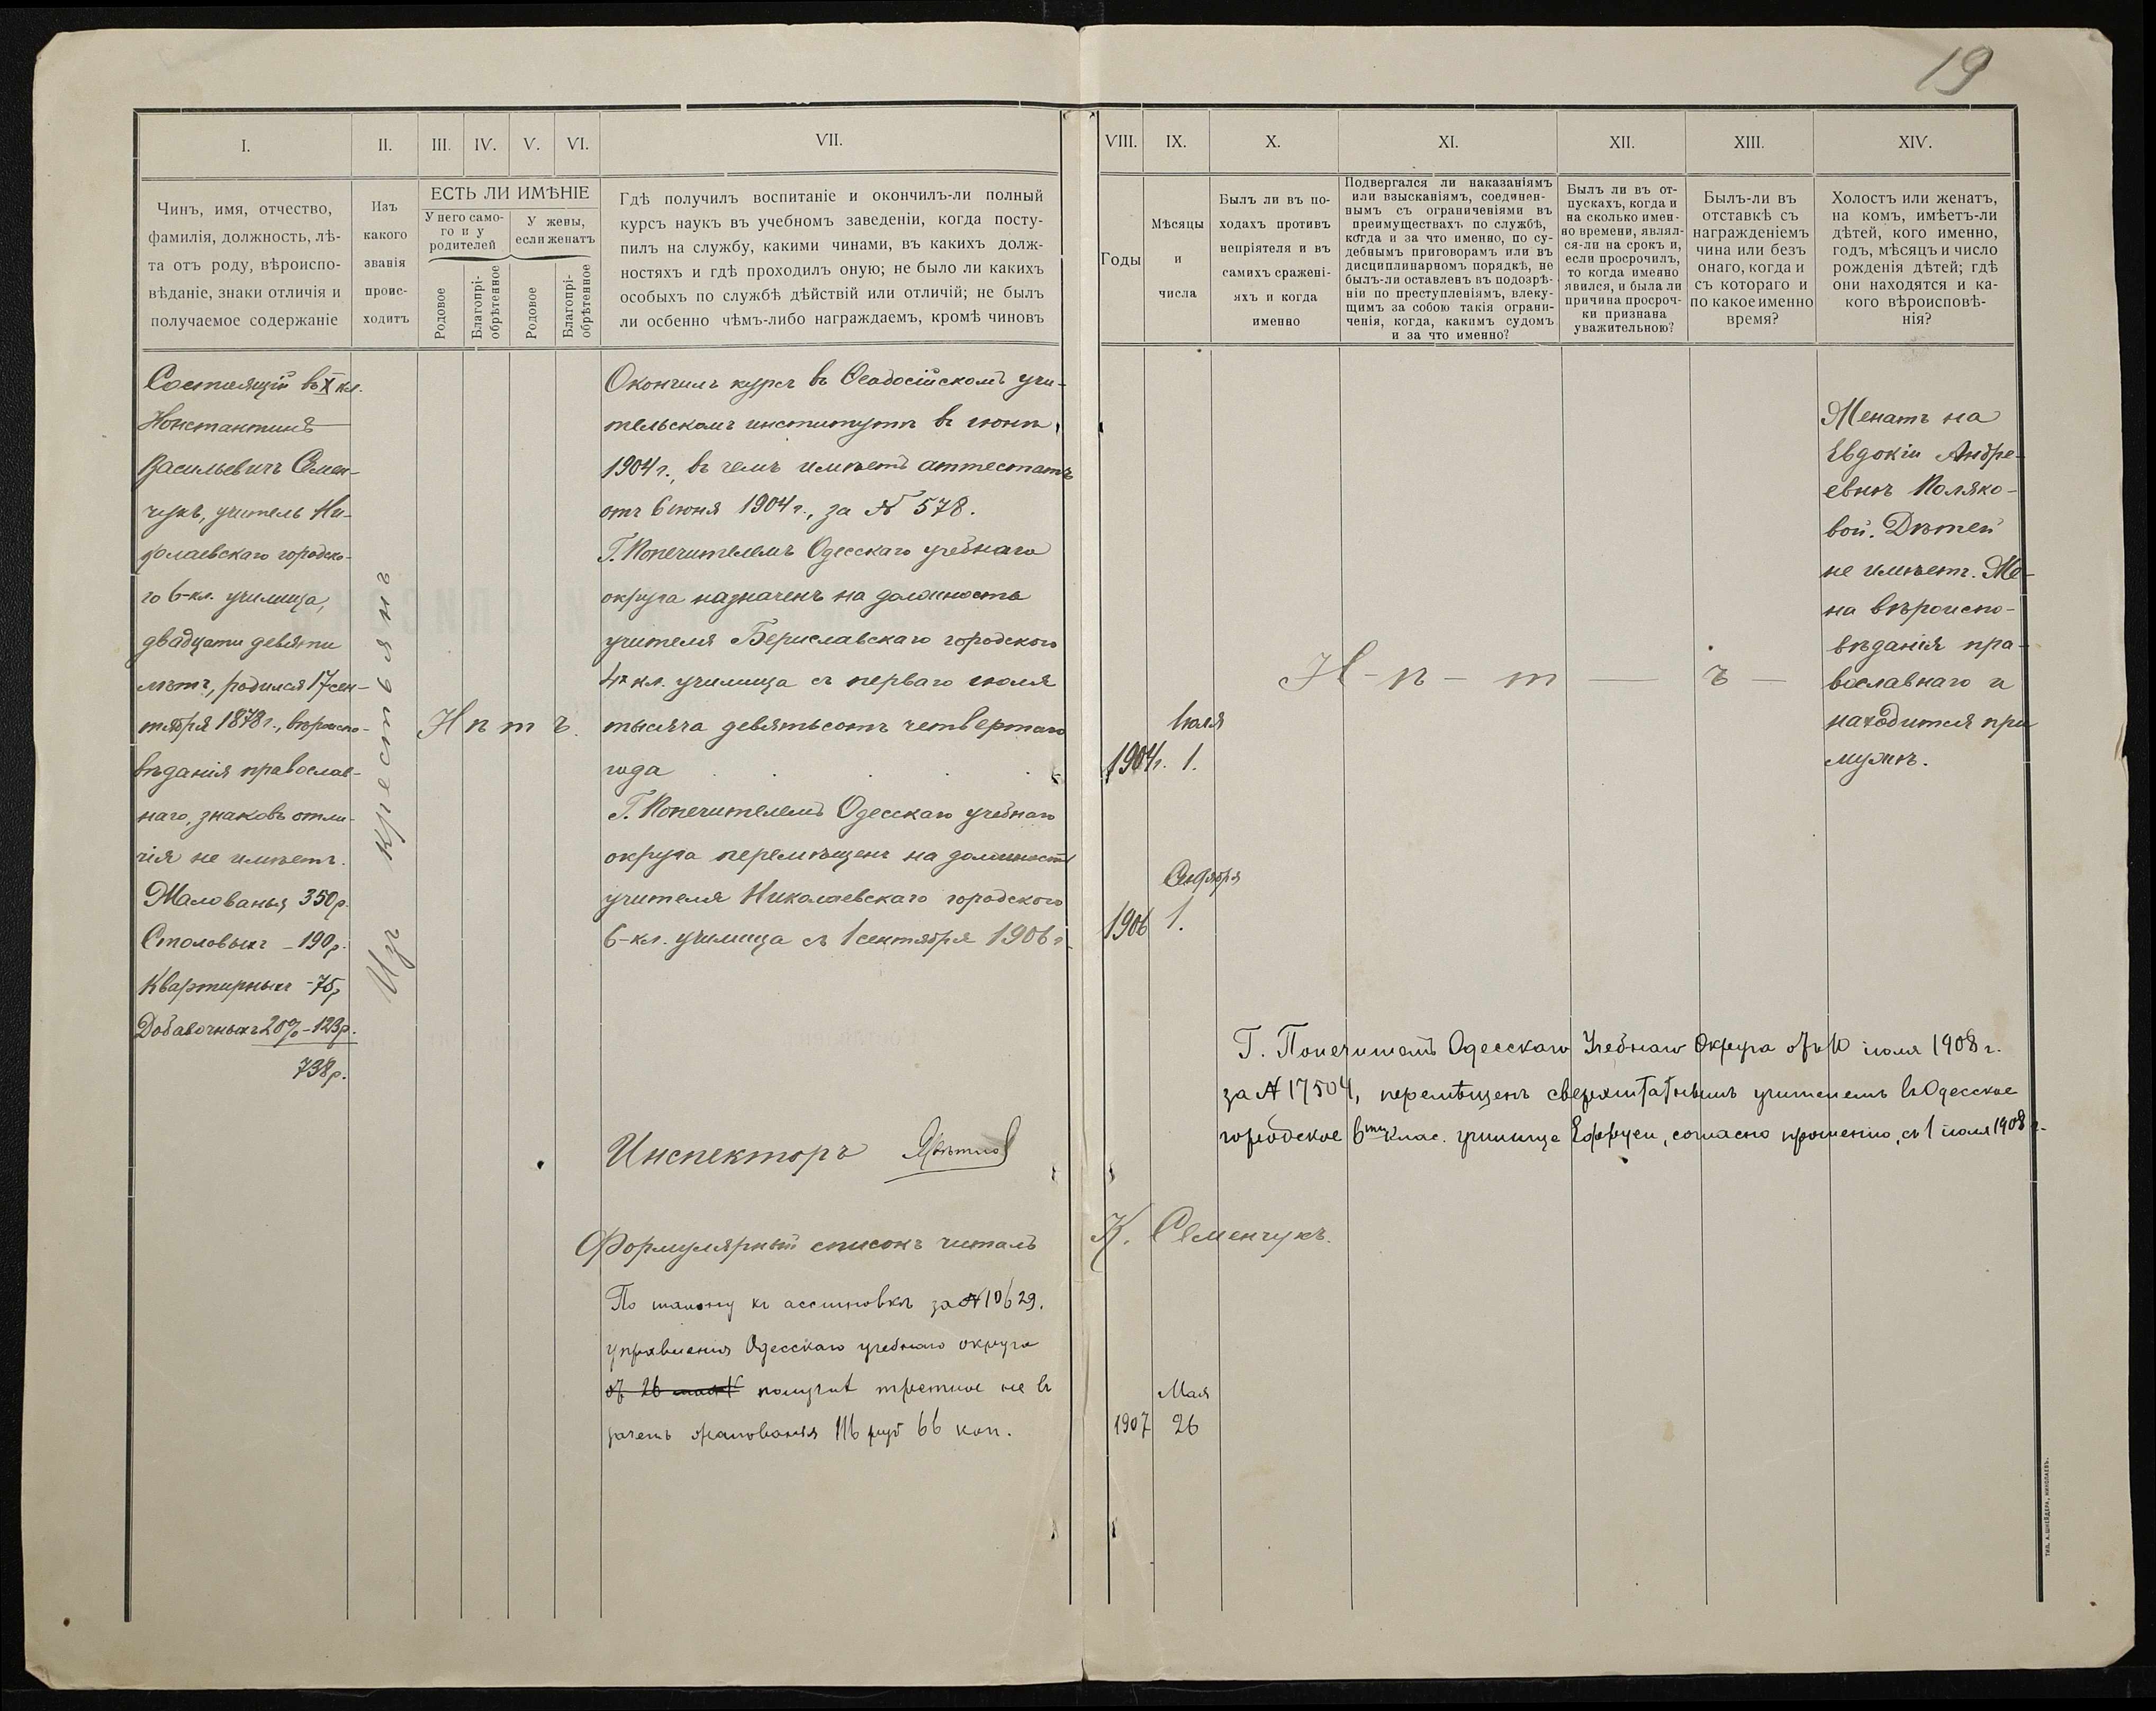 19
I.
II.
III.
IV.
V.
VI.
VII.
VIII.
IX.
X.
XI.
XII.
XIII.
XIV.
Чинъ, имя, отчество,
фамилія, должность, лѣ-
та отъ роду, вѣроиспо-
вѣданіе, знаки отличія и
получаемое содержаніе
Изъ
какого
званія
проис-
ходитъ
ЕСТЬ ЛИ ИМѢНІЕ
У него само-
го и у
родителей
У жены,
если женатъ
Родовое
Благопрі-
обрѣтенное
Родовое
Благопрі-
обрѣтенное
Гдѣ получилъ воспитаніе и окончилъ-ли полный
курсъ наукъ въ учебномъ заведеніи, когда посту-
пилъ на службу, какими чинами, въ какихъ долж-
ностяхъ и гдѣ проходилъ оную; не было ли какихъ
особыхъ по службѣ дѣйствій или отличій; не былъ
ли осбенно чѣмъ-либо награждаемъ, кромѣ чиновъ
Годы
Мѣсяцы
и
числа
Былъ ли въ по-
ходахъ противъ
непріятеля и въ
самихъ сражені-
яхъ и когда
именно
Подвергался ли наказаніямъ
или взысканіямъ, соединен-
нымъ съ ограниченіями въ
преимуществахъ по службѣ,
когда и за что именно, по су-
дебнымъ приговорамъ или въ
дисциплинарномъ порядкѣ, не
былъ-ли оставленъ въ подозрѣ-
ніи по преступленіямъ, влеку-
щимъ за собою такія ограни-
ченія, когда, какимъ судомъ
и за что именно?
Былъ ли въ от-
пускахъ, когда и
на сколько имен-
но времени, являл-
ся-ли на срокъ и,
если просрочилъ,
то когда именно
явился, и была ли
причина просроч-
ки признана
уважительною?
Былъ-ли въ
отставкѣ съ
награжденіемъ
чина или безъ
онаго, когда и
съ котораго и
по какое именно
время?
Холостъ или женатъ,
на комъ, имѣетъ-ли
дѣтей, кого именно,
годъ, мѣсяцъ и число
рожденія дѣтей; гдѣ
они находятся и ка-
кого вѣроисповѣ-
нія?
Состоящій въ X кл.
Константинъ
Васильевичъ Семен-
чукъ, учитель Ни-
колаевскаго городско-
го 6-кл. училища,
двадцати девяти
лѣтъ, родился 17 сен-
тября 1878 г., вѣроиспо-
вѣданія православ-
наго, знаковъ отли-
чія не имѣетъ.
Жалованья 350 р.
Столовыхъ – 190 р.
Квартирныхъ – 75 р
Добавочныхъ 20% – 123 р.
738 р.
Изъ крестьянъ
Нѣтъ.
Окончилъ курсъ въ Ѳеодосійскомъ учи-
тельскомъ институтѣ въ іюнѣ
1904 г., въ чемъ имѣетъ аттестатъ
отъ 6 іюня 1904 г., за № 578.
Г. Попечителемъ Одесскаго учебнаго
округа назначенъ на должность
учителя Бериславскаго городского
4х кл. училища съ перваго іюля
тысяча девятьсотъ четвертаго
года
Г. Попечителемъ Одесскаго учебнаго
округа перемѣщенъ на должность
учителя Николаевскаго городского
6-кл. училища съ 1 сентября 1906 г.
Инспекторъ
Формулярный списокъ читалъ
К. Семенчукъ.
По талону къ ассигновкѣ за № 10629.
управленія Одесскаго учебнаго округа
отъ 26 мая получилъ третное не въ
зачетъ жалованья 116 руб 66 коп.
Іюля
1904 г. 1.
Сентября
1906 1.
Мая
1907 26
Н – ѣ – т – ъ –
Женатъ на
Евдокіи Андре-
евнѣ Поляко-
вой. Дѣтей
не имѣетъ. Же-
на вѣроиспо-
вѣданія пра-
вославнаго и
находится при
мужѣ.
Г. Попечителемъ Одесскаго Учебнаго Округа отъ 10 іюля 1908 г.
за № 17504, перемѣщенъ сверхштатнымъ учителемъ въ Одесское
городское 6ти клас. училище Ефруси, согласно прошенію, съ 1 іюля 1908 г.
ТИП. А. ШНЕЙДЕРА, НИКОЛАЕВЪ.